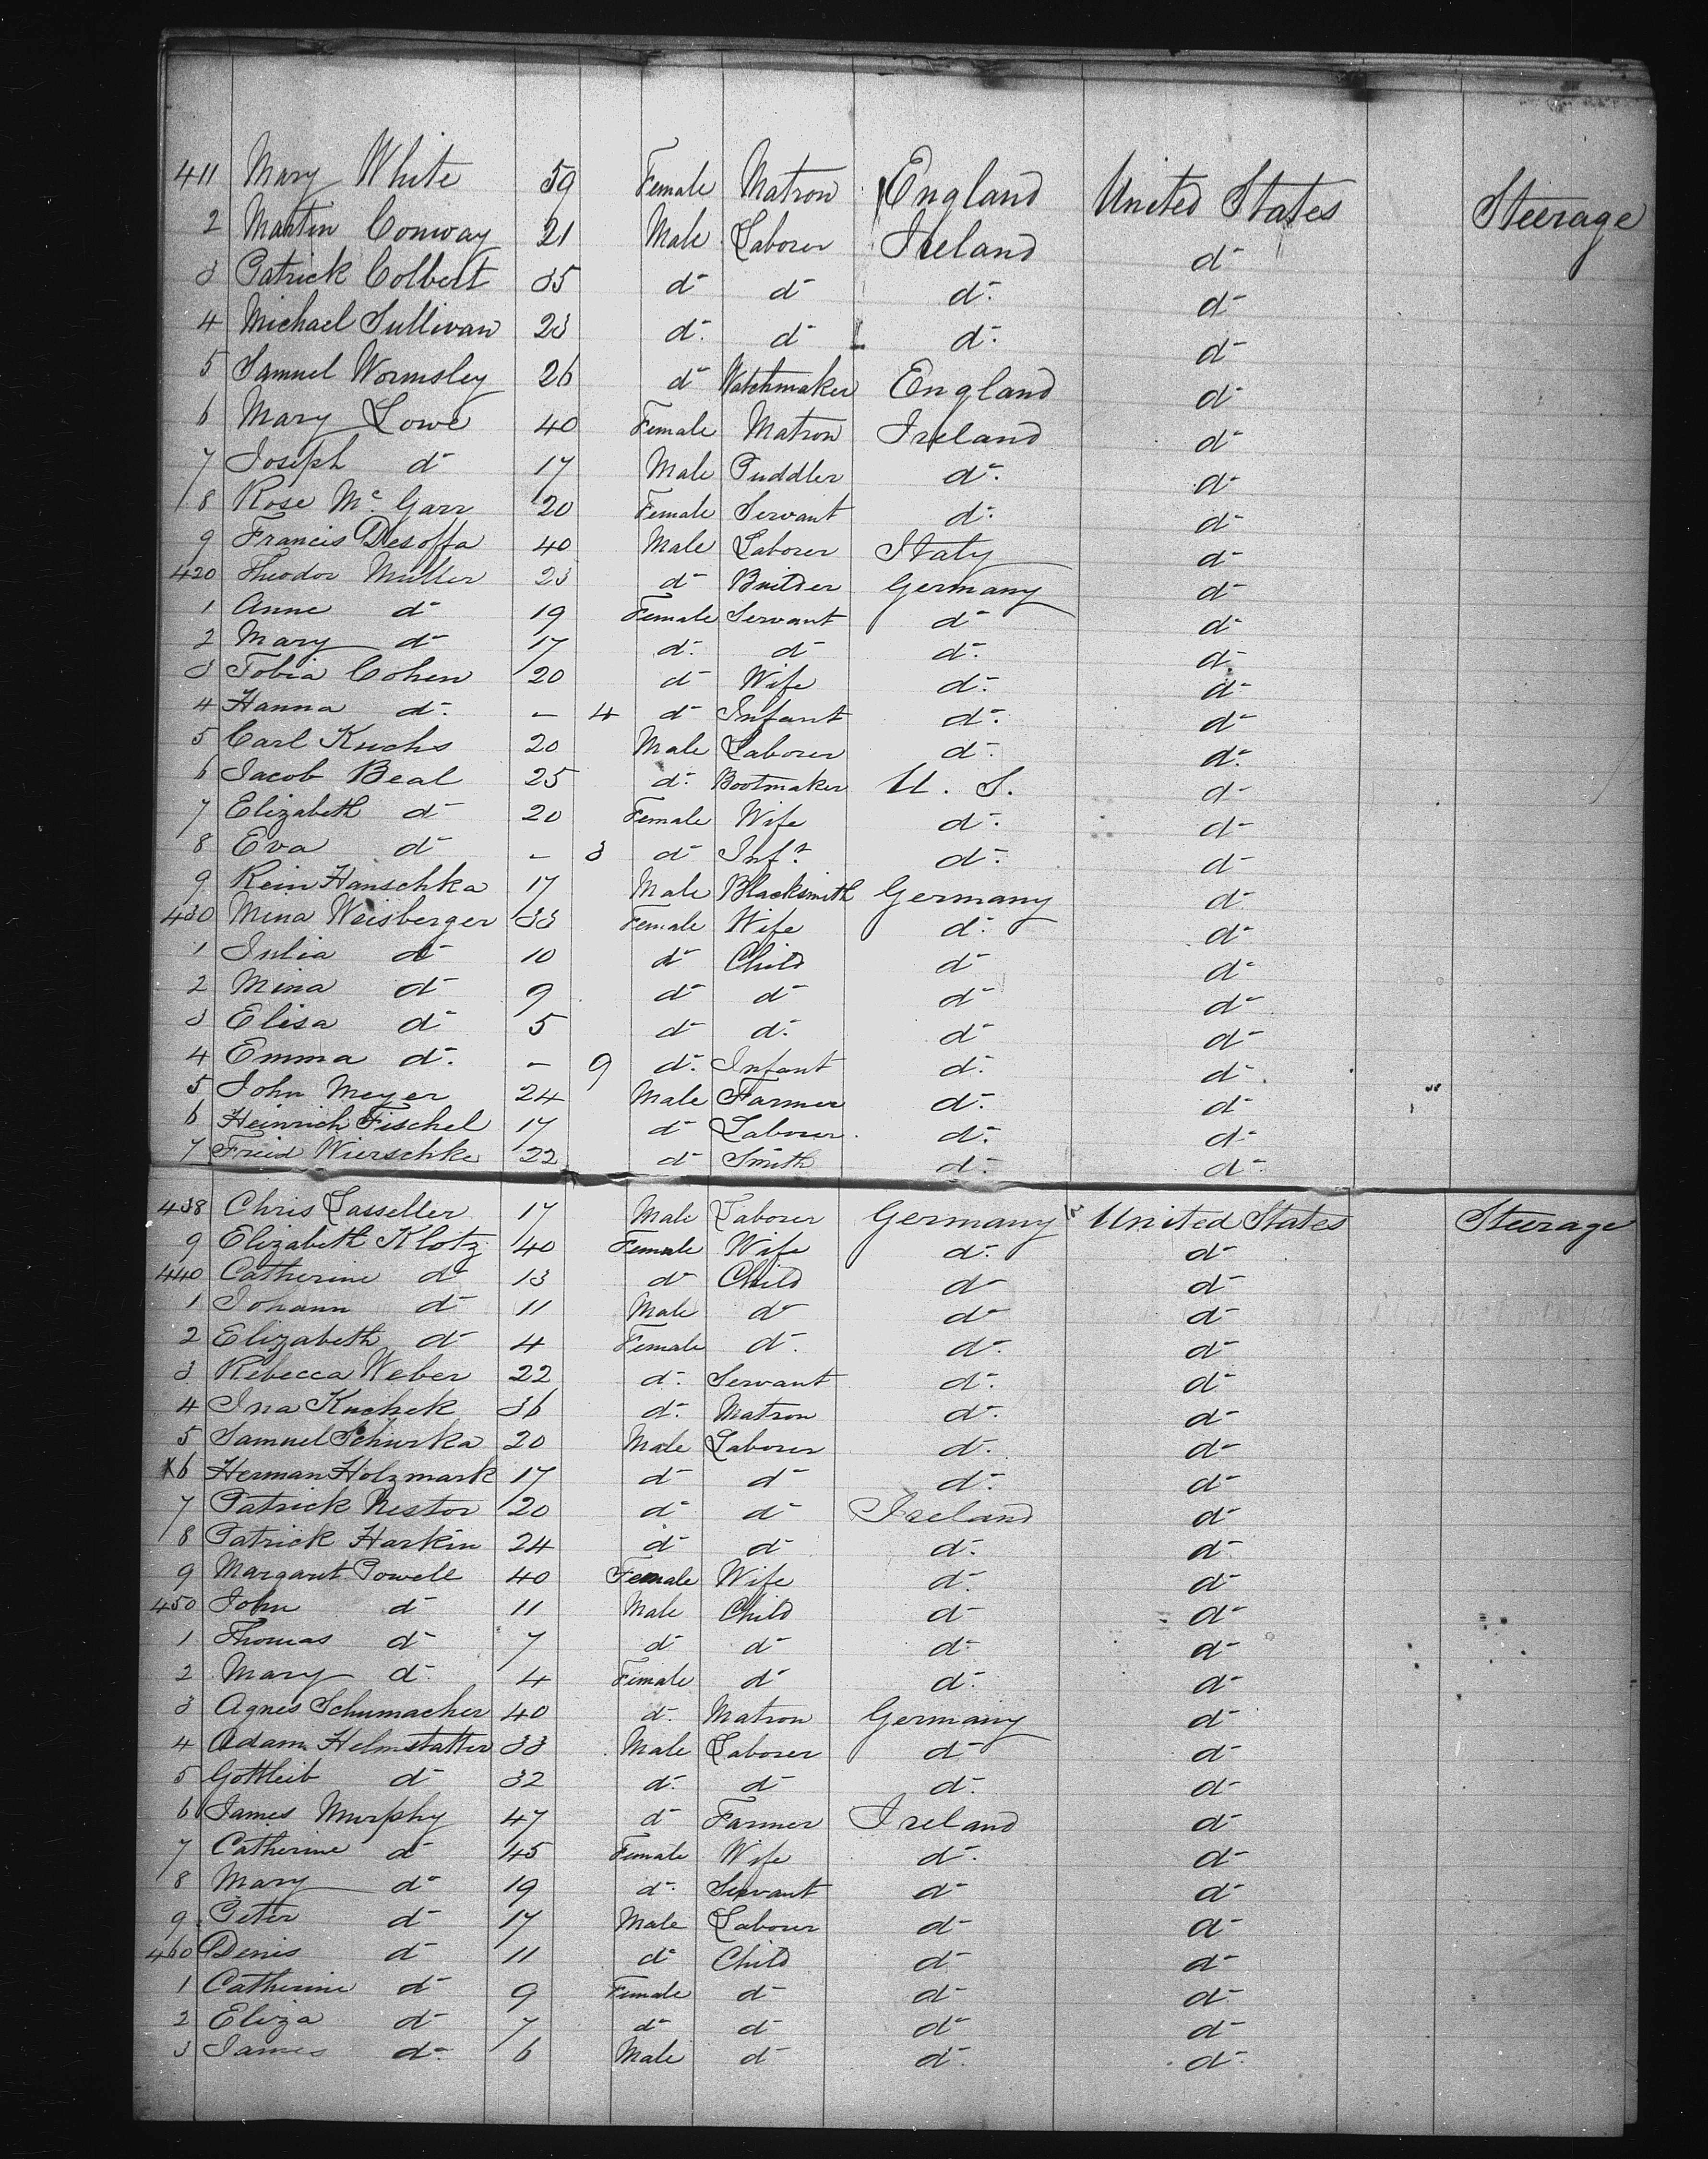 411 Mary White 59 Female Matron England United States Steerage
2 Martin Conway 21 Male Laborer Ireland do
3 Patrick Colbert 35 do do do do
4 Michael Sullivan 23 do do do do
5 Samuel Wormsley 26 do Watchmaker England do
6 Mary Lowe 40 Female Matron Ireland do
7 Joseph do 17 Male Puddler do do
8 Rose Mc Garr 20 Female Servant do do
9 Francis Desoffa 40 Male Laborer Italy do
420 Theodor Muller 23 do Builder Germany do
1 Anne do 19 Female Servant do do
2 Mary do 17 do do do do
3 Tobia Cohen 20 do Wife do do
4 Hanna do - 4 do Infant do do
5 Carl Kuchs 20 Male Laborer do do
6 Jacob Beal 25 do Bootmaker U. S. do
7 Elizabeth do 20 Female Wife do do
8 Eva do - 3 do Inft do do
9 Rein Hanschka 17 Male Blacksmith Germany do
430 Mina Weisberger 33 Female Wife do do
1 Julia do 10 do Child do do
2 Mina do 9 do do do do
3 Elisa do 5 do do do do
4 Emma do - 9 do Infant do do
5 John Meyer 24 Male Farmer do do
6 Heinrich Fischel 17 do Laborer do do
7 Freid Wierschke 22 do Smith do do
438 Chris Lasseller 17 Male Laborer Germany United States Steerage
9 Elizabeth Klotz 40 Female Wife do do
440 Catherine do 13 do Child do do
1 Johann do 11 Male do do do
2 Elizabeth do 4 Female do do do
3 Rebecca Weber 22 do Servant do do
4 Ina Kuchek 36 do Matron do do
5 Samuel Schurka 20 Male Laborer do do
6 Herman Holzmark 17 do do do do
7 Patrick Nestor 20 do do Ireland do
8 Patrick Harkin 24 do do do do
9 Margaret Powell 40 Female Wife do do
450 John do 11 Male Child do do
1 Thomas do 7 do do do do
2 Mary do 4 Female do do do
3 Agnes Schumacher 40 do Matron Germany do
4 Adam Helmstatter 33 Male Laborer do do
5 Gottleib do 32 do do do do
6 James Murphy 47 do Farmer Ireland do
7 Catherine do 45 Female Wife do do
8 Mary do 19 do Servant do do
9 Peter do 17 Male Laborer do do
460 Denis do 11 do Child do do
1 Catherine do 9 Female do do do
2 Eliza do 7 do do do do
3 James do 6 Male do do do